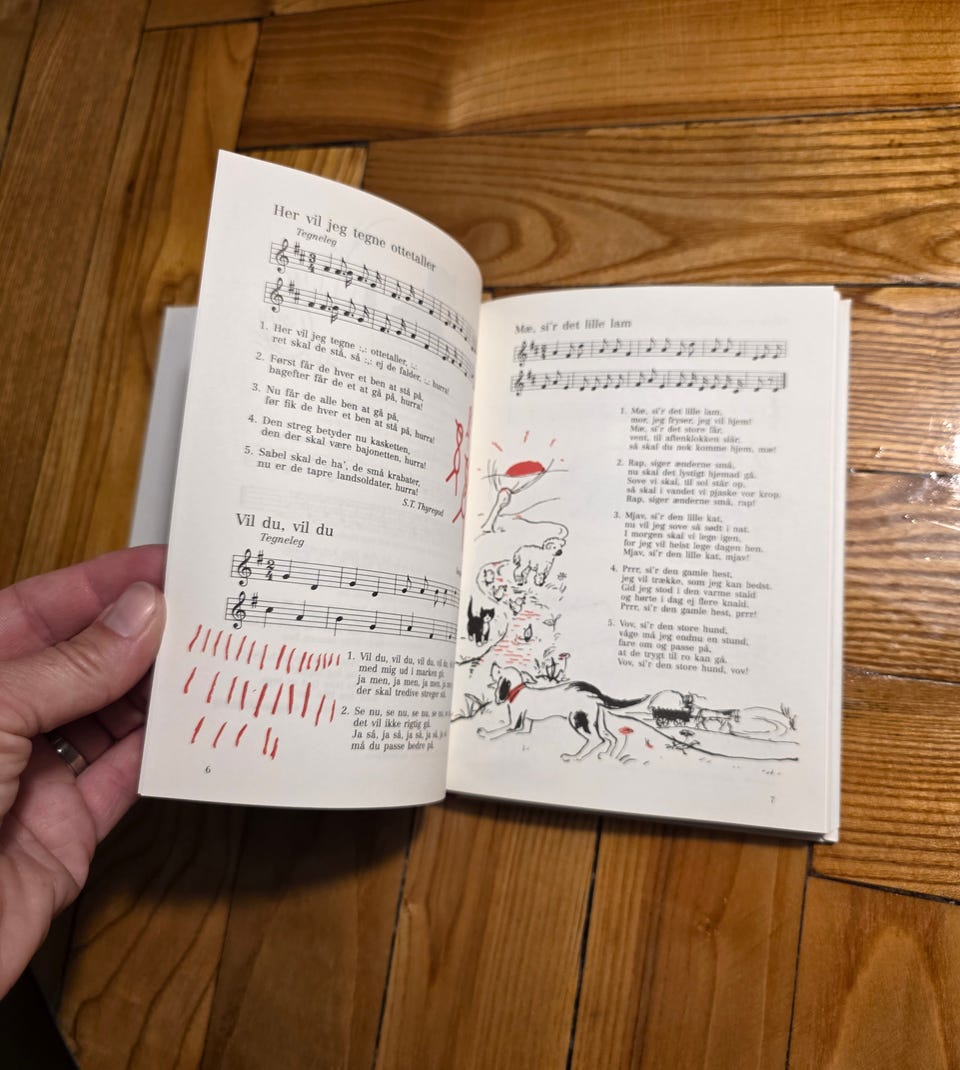 Her vil jeg tegne ottetaller
Tegneleg
1. Her vil jeg tegne :,: ottetaller, :,:
ret skal de stå, så :,: ej de falder, :,: hurra!
2. Først får de hver et ben at stå på,
bagefter får de et at gå på, hurra!
3. Nu får de alle ben at gå på,
før fik de hver et ben at stå på, hurra!
4. Den streg betyder nu kasketten,
den der skal være bajonetten, hurra!
5. Sabel skal de ha', de små krabater,
nu er de tapre landsoldater, hurra!
S.T. Thyregod
Vil du, vil du
Tegneleg
1. Vil du, vil du, vil du, vil du,
med mig ud i marken gå.
ja men, ja men, ja men, ja
der skal tredive streger så.
2. Se nu, se nu, se nu, se nu,
det vil ikke rigtig gå.
Ja så, ja så, ja så, ja så,
må du passe bedre på.
6
Mæ, si'r det lille lam
1. Mæ, si'r det lille lam,
mor, jeg fryser, jeg vil hjem!
Mæ, si'r det store får,
vent, til aftenklokken slår,
så skal du nok komme hjem, mæ!
2. Rap, siger ænderne små,
nu skal det lystigt hjemad gå.
Sove vi skal, til sol står op,
så skal i vandet vi pjaske vor krop.
Rap, siger ænderne små, rap!
3. Mjav, si'r den lille kat,
nu vil jeg sove så sødt i nat.
I morgen skal vi lege igen,
for jeg vil helst lege dagen hen.
Mjav, si'r den lille kat, mjav!
4. Prrr, si'r den gamle hest,
jeg vil trække, som jeg kan bedst.
Gid jeg stod i den varme stald
og hørte i dag ej flere knald.
Prrr, si'r den gamle hest, prrr!
5. Vov, si'r den store hund,
våge må jeg endnu en stund,
fare om og passe på,
at de trygt til ro kan gå.
Vov, si'r den store hund, vov!
7